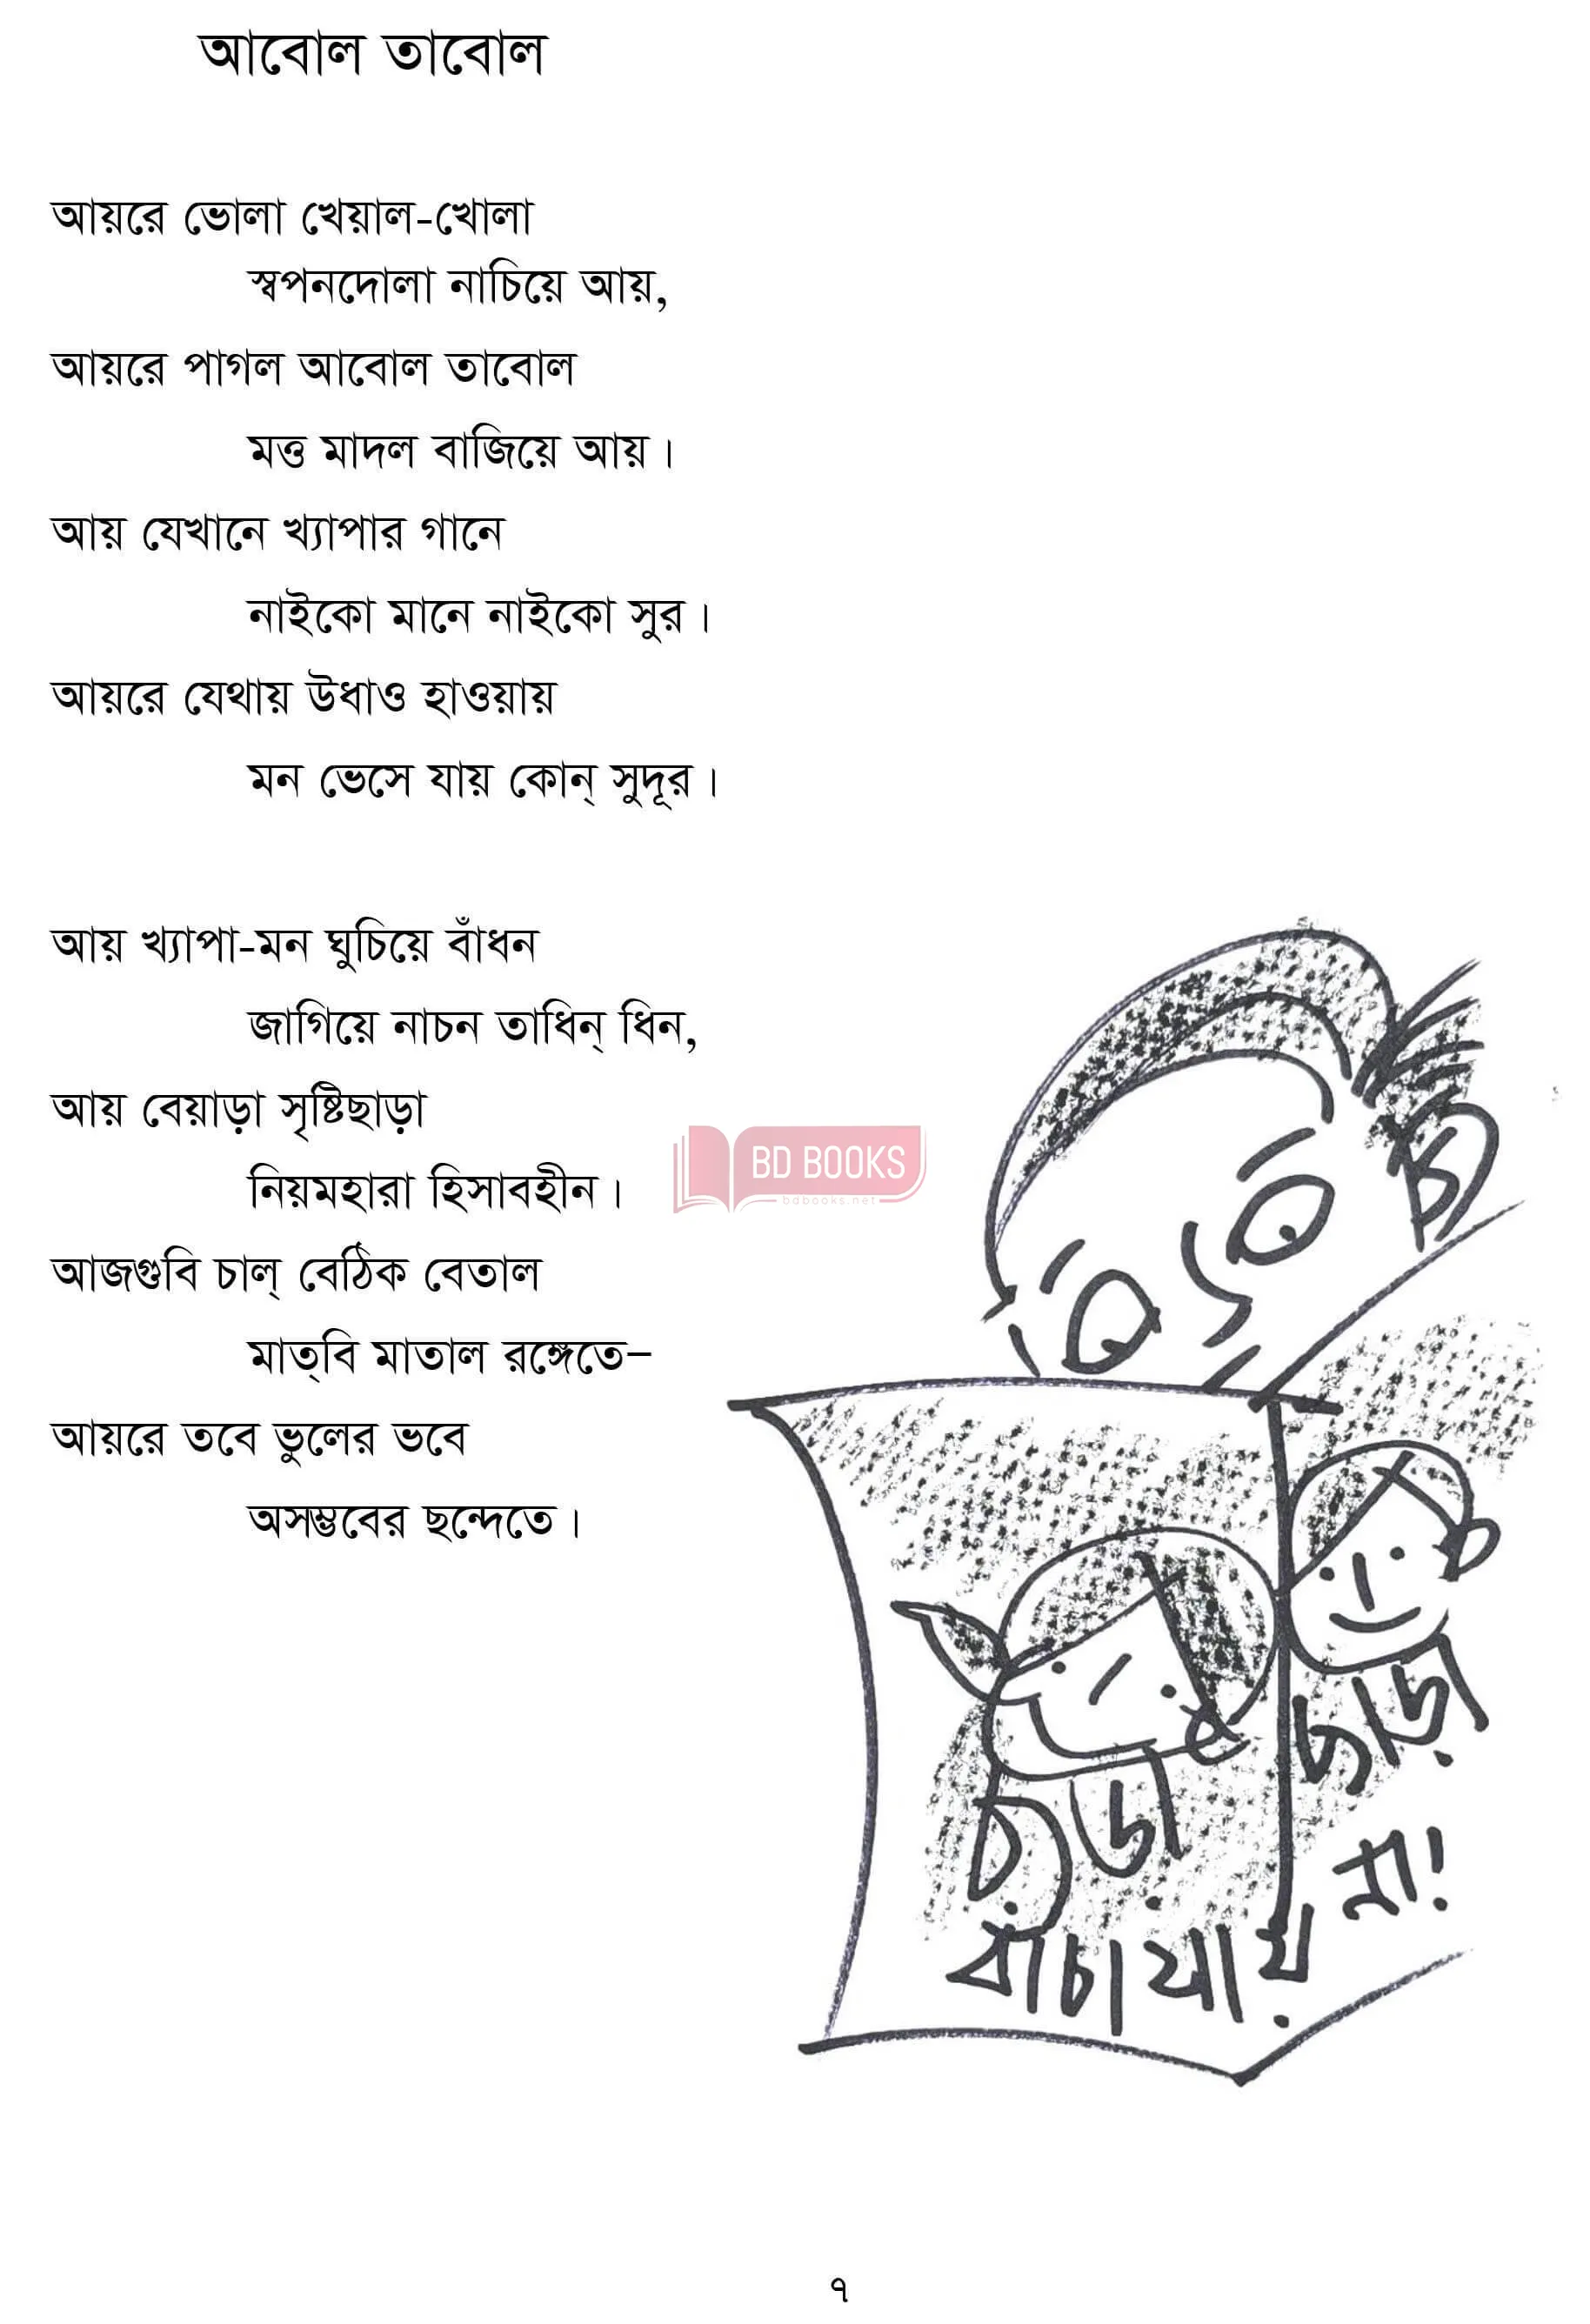 আবোল তাবোল
আয়রে ভোলা খেয়াল-খোলা
স্বপনদোলা নাচিয়ে আয়,
আয়রে পাগল আবোল তাবোল
মত্ত মাদল বাজিয়ে আয়।
আয় যেখানে খ্যাপার গানে
নাইকো মানে নাইকো সুর।
আয়রে যেথায় উধাও হাওয়ায়
মন ভেসে যায় কোন্ সুদূর।
আয় খ্যাপা-মন ঘুচিয়ে বাঁধন
জাগিয়ে নাচন তাধিন্ ধিন,
আয় বেয়াড়া সৃষ্টিছাড়া
নিয়মহারা হিসাবহীন।
আজগুবি চাল্ বেঠিক বেতাল
মাত্‌বি মাতাল রঙ্গেতে–
আয়রে তবে ভুলের ভবে
অসম্ভবের ছন্দেতে।
BD BOOKS
bdbooks.net
ছড়া ছাড়া
বাঁচা যায় না!
৭